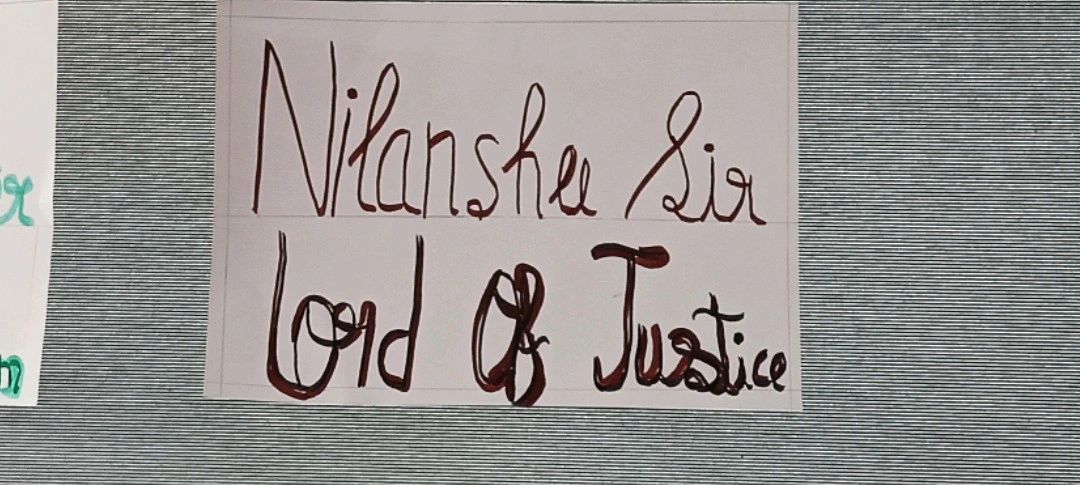 Nilanshee Sir
Lord Of Justice